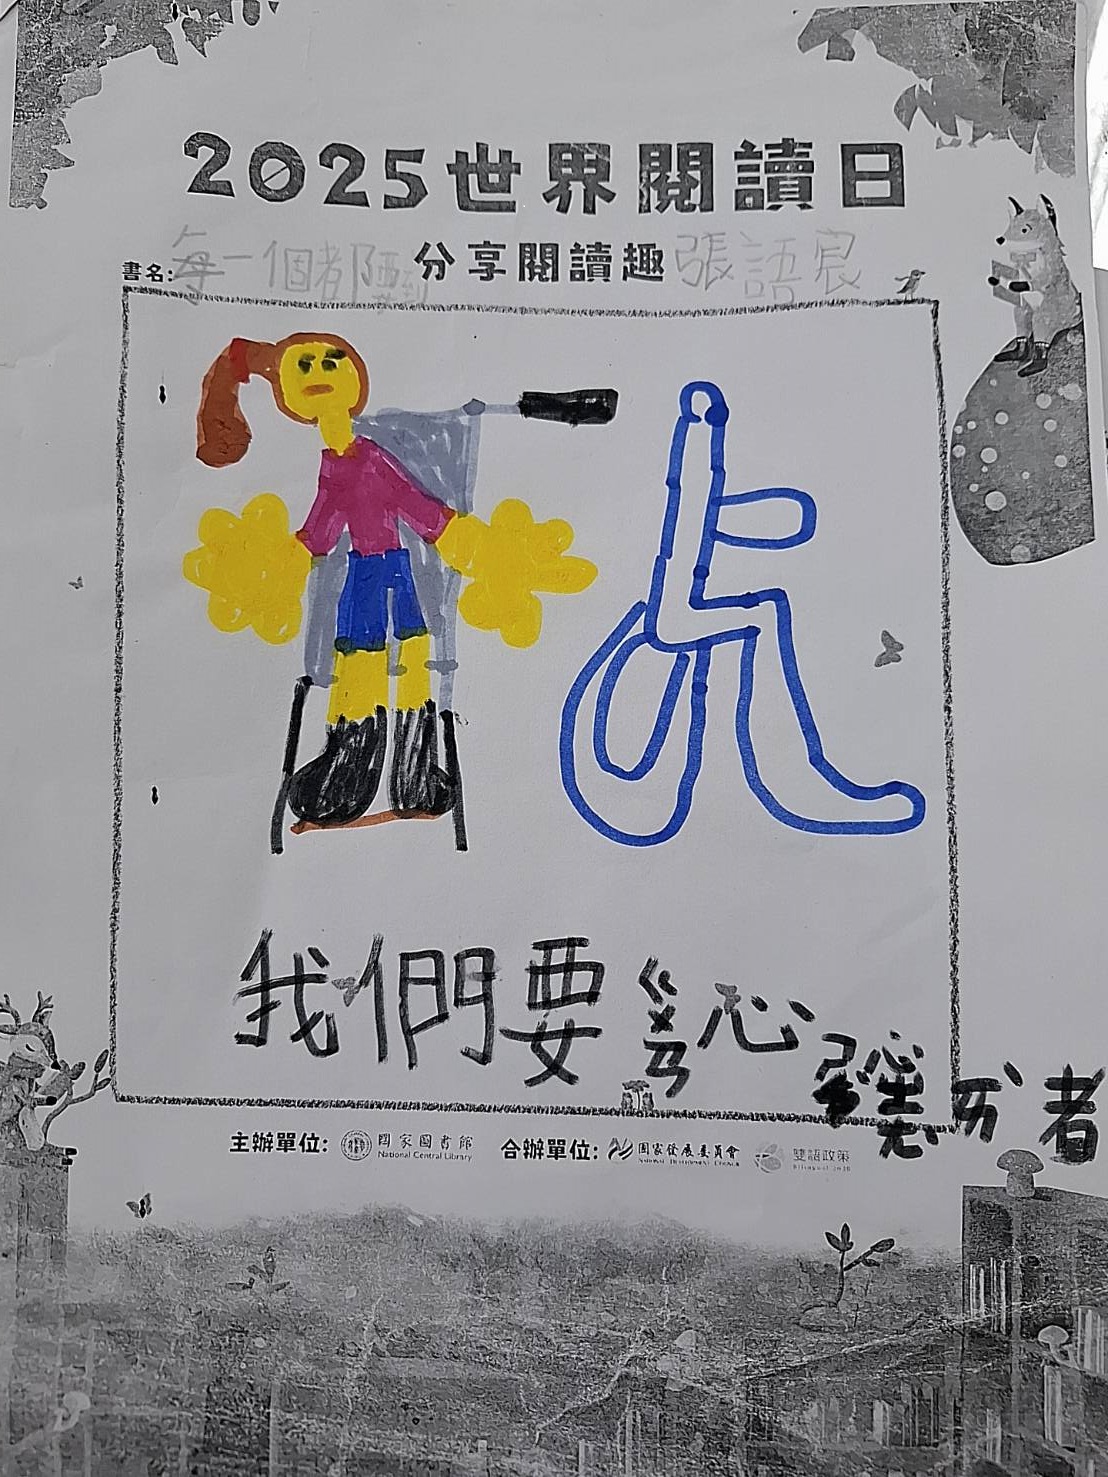 2025世界閱讀日
分享閱讀趣
書名:每一個都
張語宸
我們要ㄍㄨㄢ心
ㄞˋ者
主辦單位: 國家圖書館 National Central Library 合辦單位: 國家發展委員會 NATIONAL DEVELOPMENT COUNCIL 雙語政策 Bilingual 2030